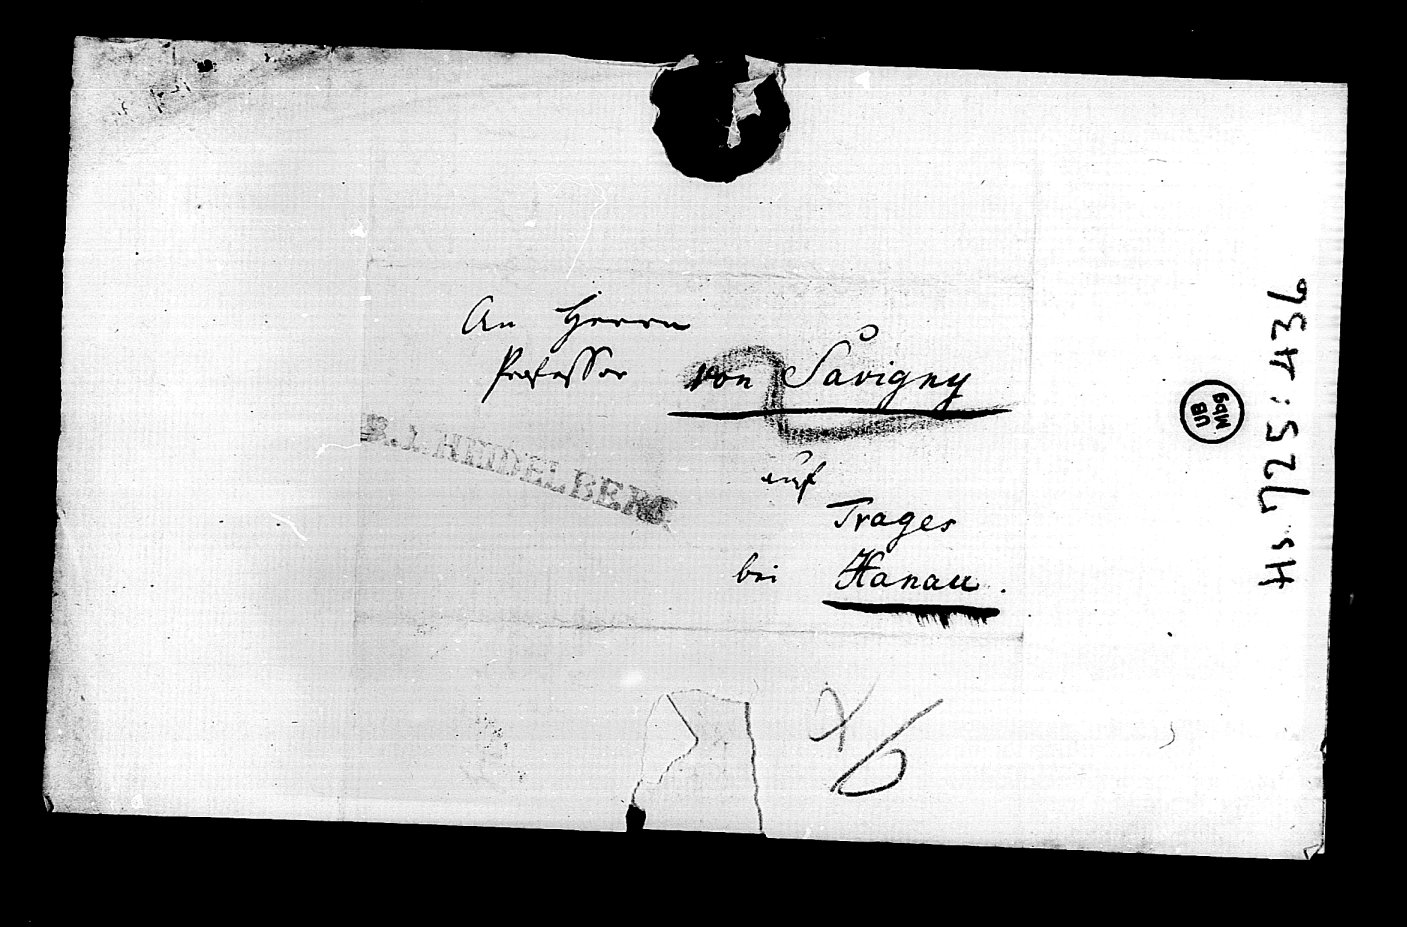 An Herrn
Professor von Savigny
R.1. HEIDELBERG
auf
Trages
bei Hanau.
Hs. 725:436
UB
Mbg